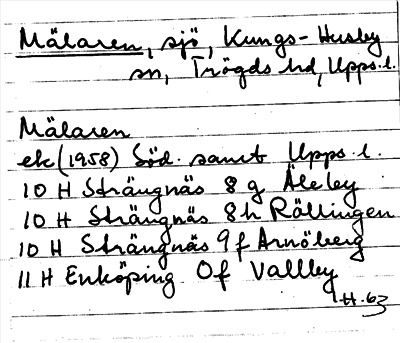 Mälaren, sjö, Kungs-Husby
sn, Trögds hd, Upps. l.
Mälaren
ek (1958) Söd. samt Upps. l.
10 H Strängnäs 8 g Åleby
10 H Strängnäs 8 h Rällingen
10 H Strängnäs 9 f Arnöberg
11 H Enköping 0 f Vallby
H. 63